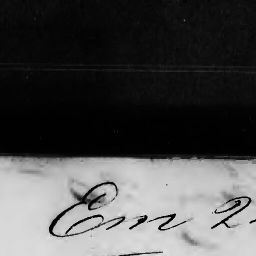 Em 2